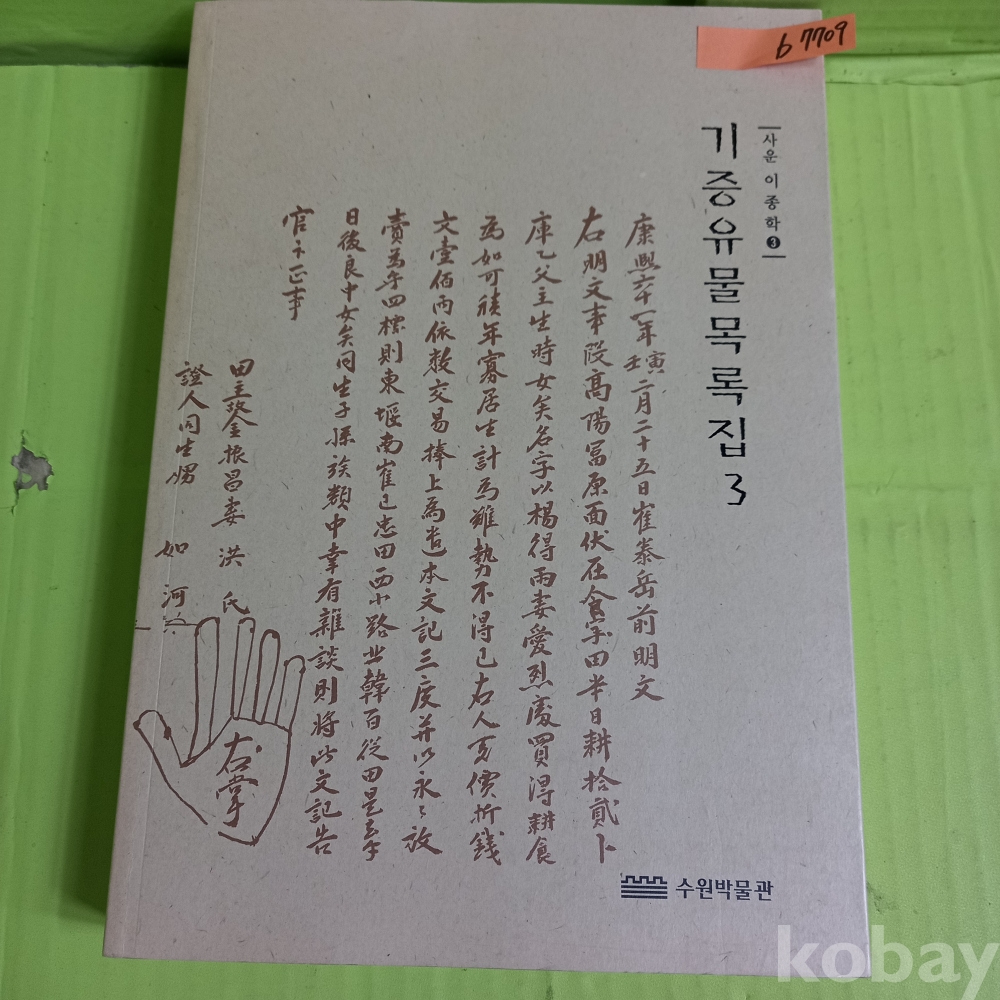 b 7709
사운 이종학 ❸
기증유물목록집 3
康熙六十一年壬寅二月二十五日崔泰岳前明文
右明文事段高陽冨原面伏在食字田半日耕拾貳卜
庫乙父主生時女矣名字以楊得雨妻愛烈處買得耕食
為如可積年寡居生計為難勢不得已右人前價折錢
文壹佰両依數交易捧上為遣本文記三度并以永永放
賣為乎四標則東堰南崔已忠田西小路北韓百從田是乎
日後良中女矣同生子孫族類中幸有雜談則將此文記告
官卞正事
田主 金振昌妻 洪氏
證人同生娚 如河
右掌
수원박물관
kobay